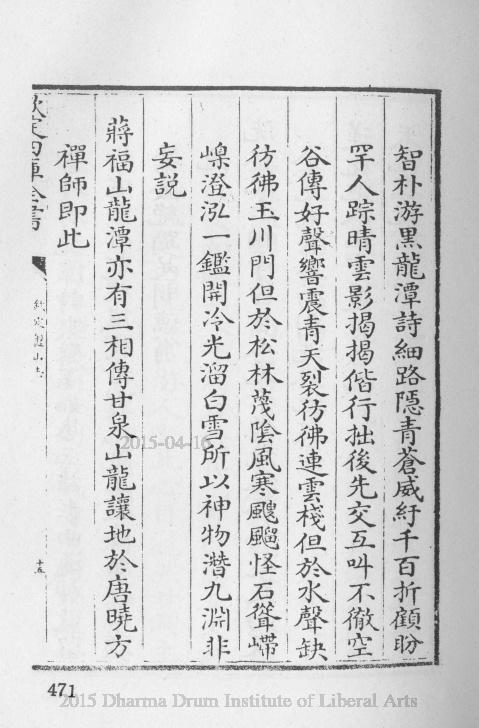 智朴游黑龍潭詩細路隱青蒼威紆千百折顧盼
罕人踪晴雲影揭揭偕行拙後先交互叫不徹空
谷傳好聲響震青天裂彷彿連雲棧但於水聲缺
彷彿玉川門但於松林茂陰風寒颼飀怪石聳嵽
嵲澄泓一鑑開冷光溜白雪所以神物潛九淵非
妄説
蔣福山龍潭亦有三相傳甘泉山龍讓地於唐曉方
禪師即此
欽定四庫全書
欽定盤山志
十五
2015-04-16
471
2015 Dharma Drum Institute of Liberal Arts